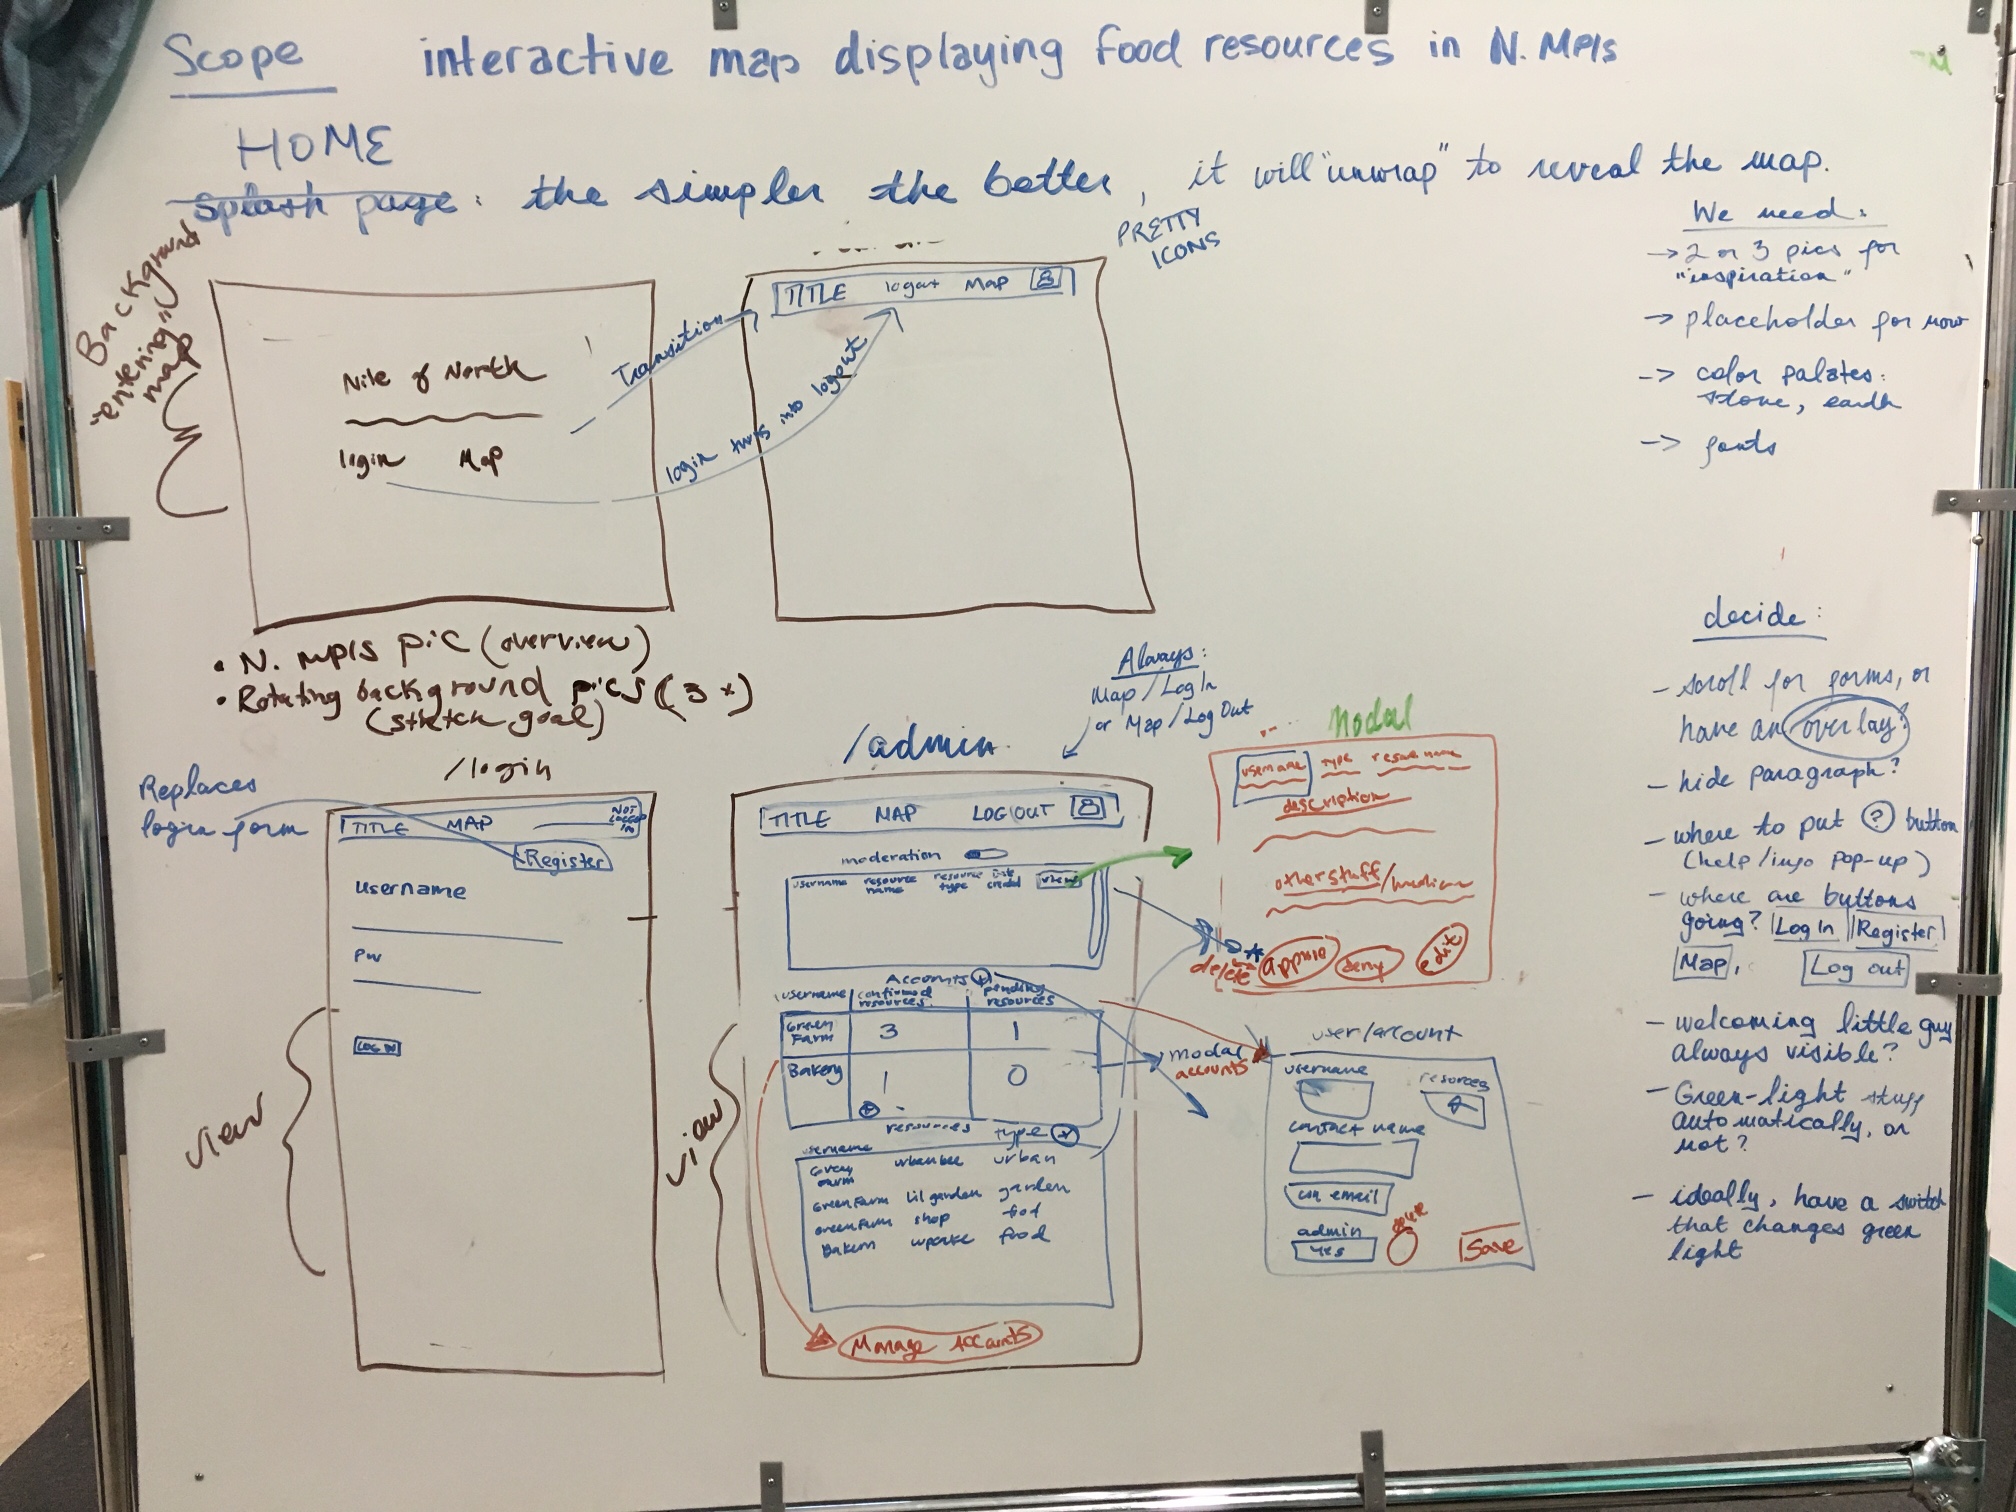 Scope interactive map displaying food resources in N. MPls
HOME
splash page: the simpler the better, it will "unwrap" to reveal the map.
PRETTY
ICONS
Background
"entering"
map
Nile of North
login Map
Transition
login turns into logout
TITLE logout Map
• N. mpls pic (overview)
• Rotating background pics (3x)
(stretch goal)
We need:
→ 2 or 3 pics for
"inspiration"
→ placeholder for now
→ color palates:
stone, earth
→ fonts
Replaces
login form
/login
TITLE MAP NOT
LOGGED
IN
Register
username
PW
LOG IN
view
/admin
Always:
Map / Log In
or Map / Log Out
TITLE MAP LOGOUT
moderation
username resource
name resource
type date
view
Accounts +
username confirmed
resources pending
resources
Green
Farm 3 1
Bakery 1 0
resources type
username
Green
Farm urban bee urban
Green Farm lil garden garden
Green Farm shop food
Bakery food
Manage Accounts
view
Modal
username type resource name
description
other stuff/
delete approve deny edit
modal
accounts
user/account
username resources
contact name
email
admin
yes
delete
Save
decide:
- scroll for forms, or
have an overlay?
- hide paragraph?
- where to put ? button
(help/info pop-up)
- where are buttons
going? Log In Register
Map, Log out
- welcoming little guy
always visible?
- Green-light stuff
automatically, or
not?
- ideally, have a switch
that changes green
light